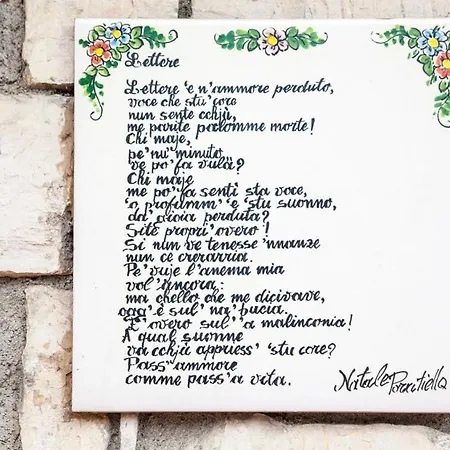 Lettere
Lettere 'e n'ammore perduto,
voce che stu'core
nun sente cchjù,
me parite palomme morte!
Chi maje,
pe'nu'minuto,
ve po'fa vulà?
Chi maje
me po'fa sentì sta voce,
'o profumm' 'e 'stu suonno,
da'gioia perduta?
Site propri'overo!
Si nun ve tenesse 'nnanze
nun ce crerarria.
Pe'vuje l'anema mia
vol'ancora:
ma chello che me dicivave,
ogg'è sul'na'bucia.
E'overo sul''a malinconia!
A qual suonne
va cchjù appriess' 'stu core?
Pass'ammore
comme pass'a vita.
Natale Porritiello